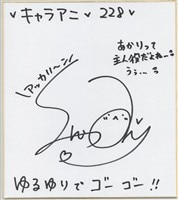 ♥キャラアニ♥228♥
あかりって
主人役だよねー
うぅ…
\アッカリ〜ン/
ゆるゆりで ゴー ゴー!!